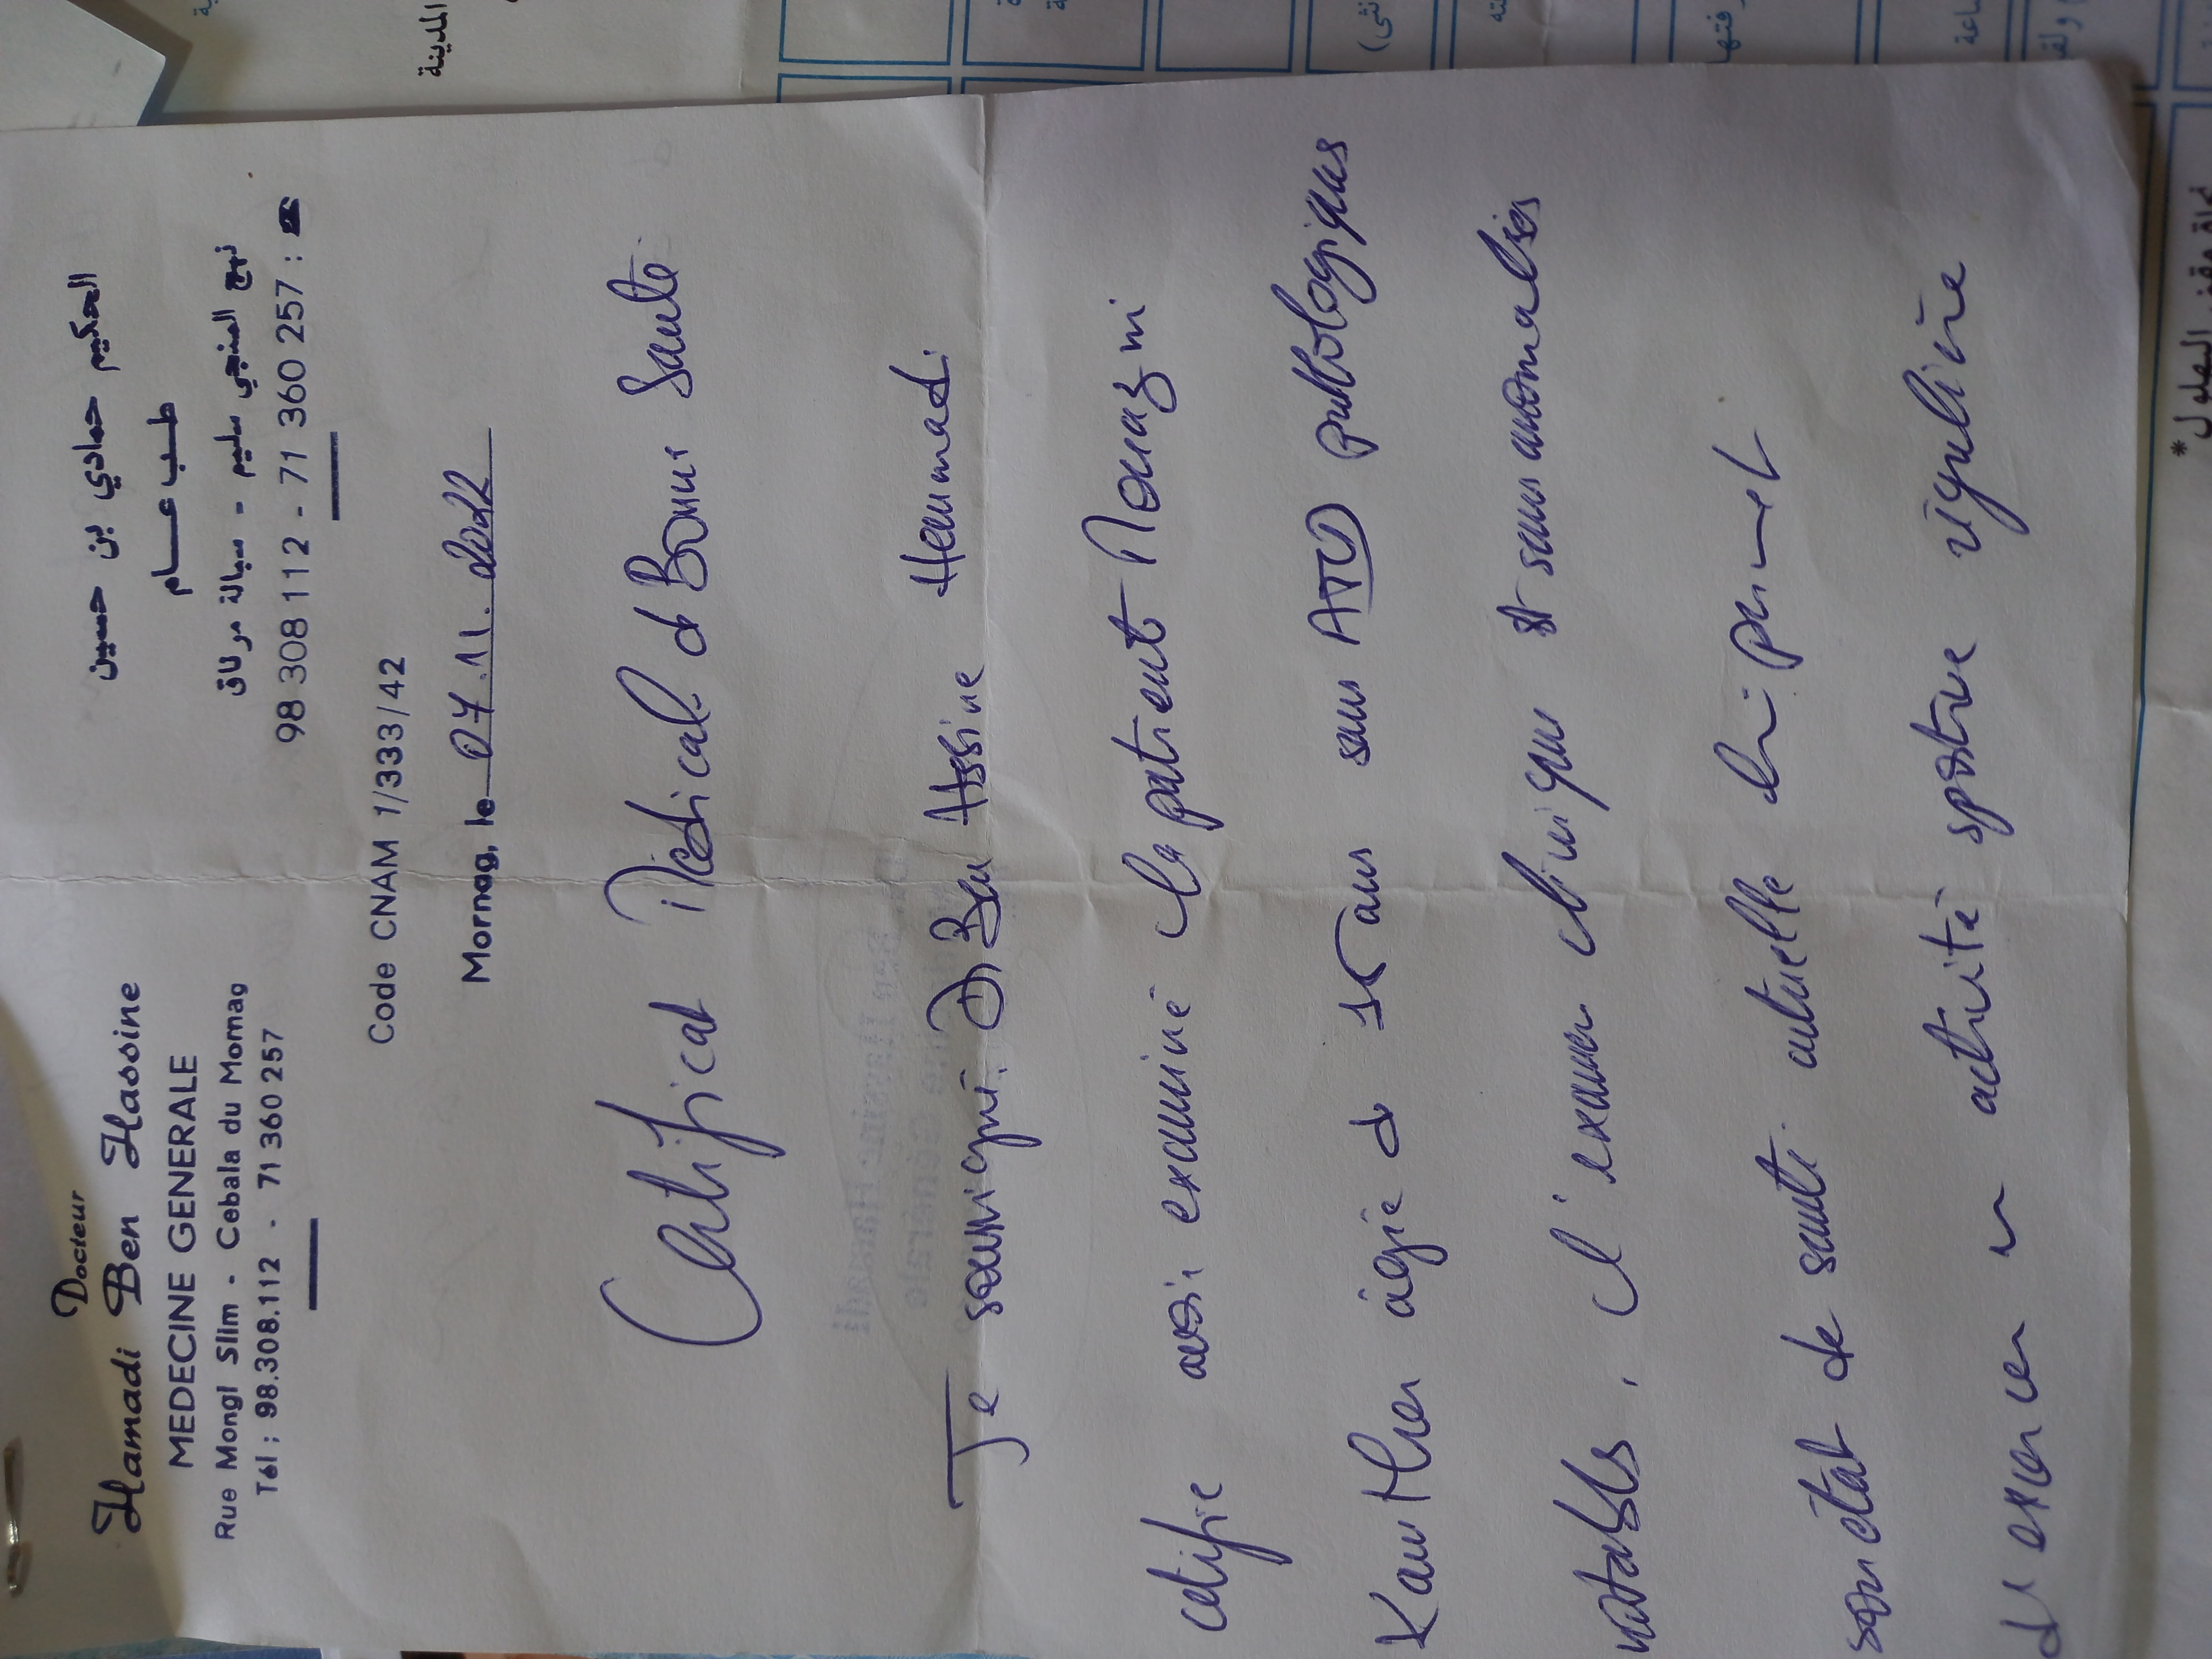 Docteur
Hamadi Ben Hassine
MEDECINE GENERALE
Rue Mongi Slim - Cebala du Mornag
Tél : 98.308.112 - 71 360 257
الحكيم حمادي بن حسين
طب عام
نهج المنجي سليم - سبالة مرناق
98 308 112 - 71 360 257 : ☎
Code CNAM 1/333/42
Mornag, le 07.11.2022
Certificat Médical de Bonne Santé
Je soussigné Dr Ben Hassine Hammadi
certifie avoir examiné la patiente Mouazni
Kaouther âgée de ans sans ATCD pathologiques
notables, l'examen clinique est sans anomalies
son état de santé actuelle lui permet
d'exercer une activité sportive régulière
المدينة